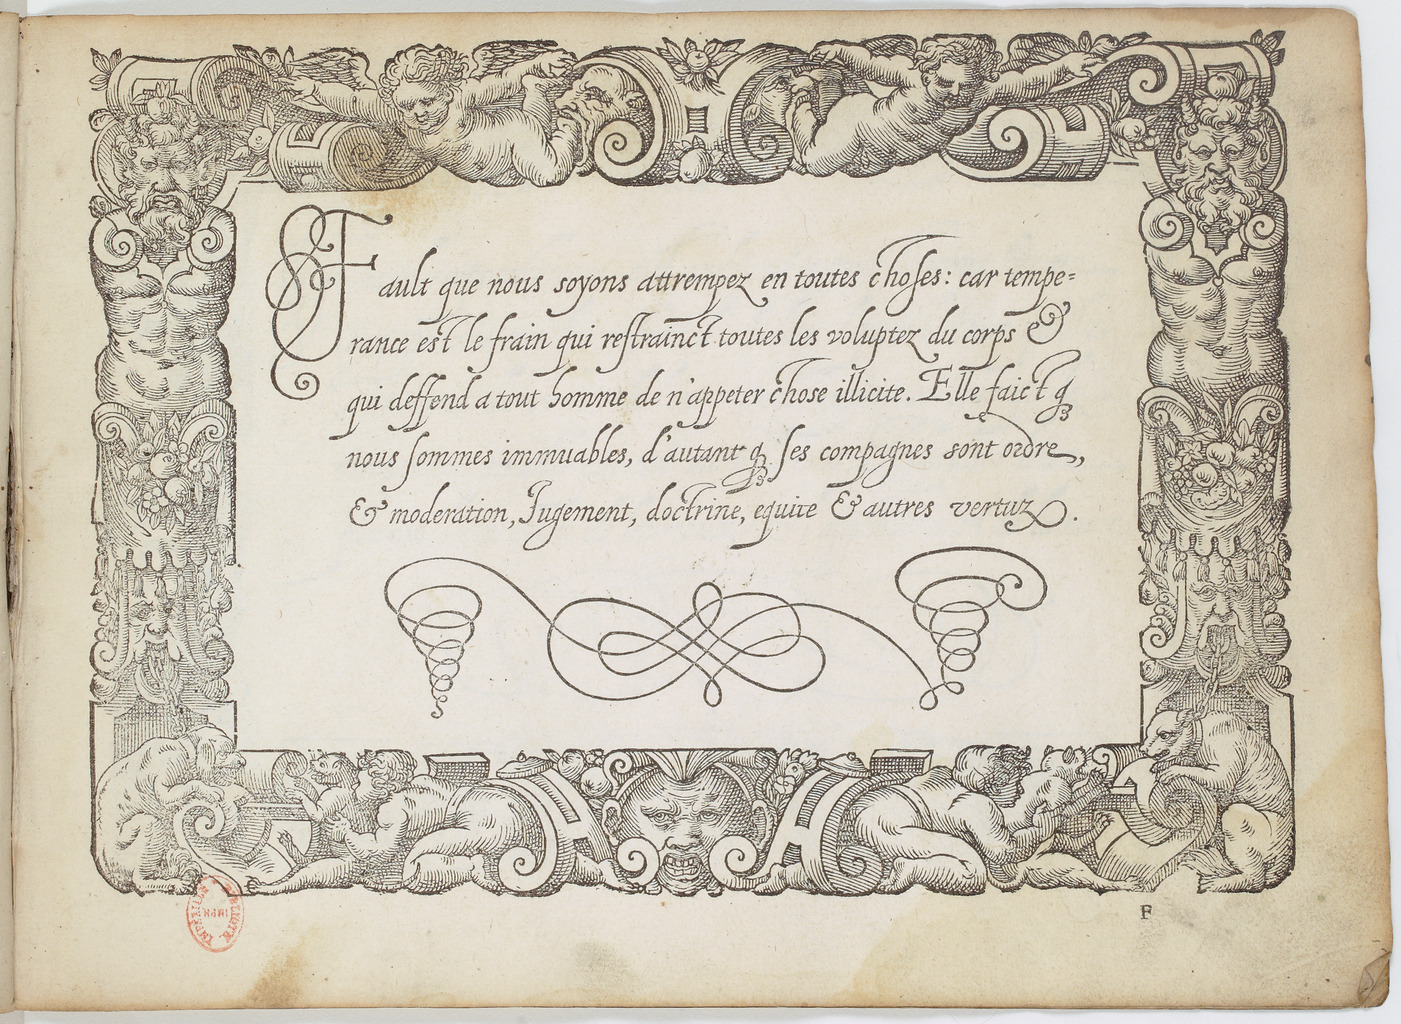 Fault que nous soyons attrempez en toutes choses: car tempe=
rance est le frain qui restrainct toutes les voluptez du corps &
qui deffend a tout homme de n'appeter chose illicite. Elle faict q̃
nous sommes immuables, d'autant q̃ ses compagnes sont ordre,
& moderation, Jugement, doctrine, equite & autres vertuz.
F